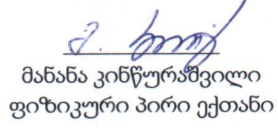 მანანა კინწურაშვილი
ფიზიკური პირი ექთანი